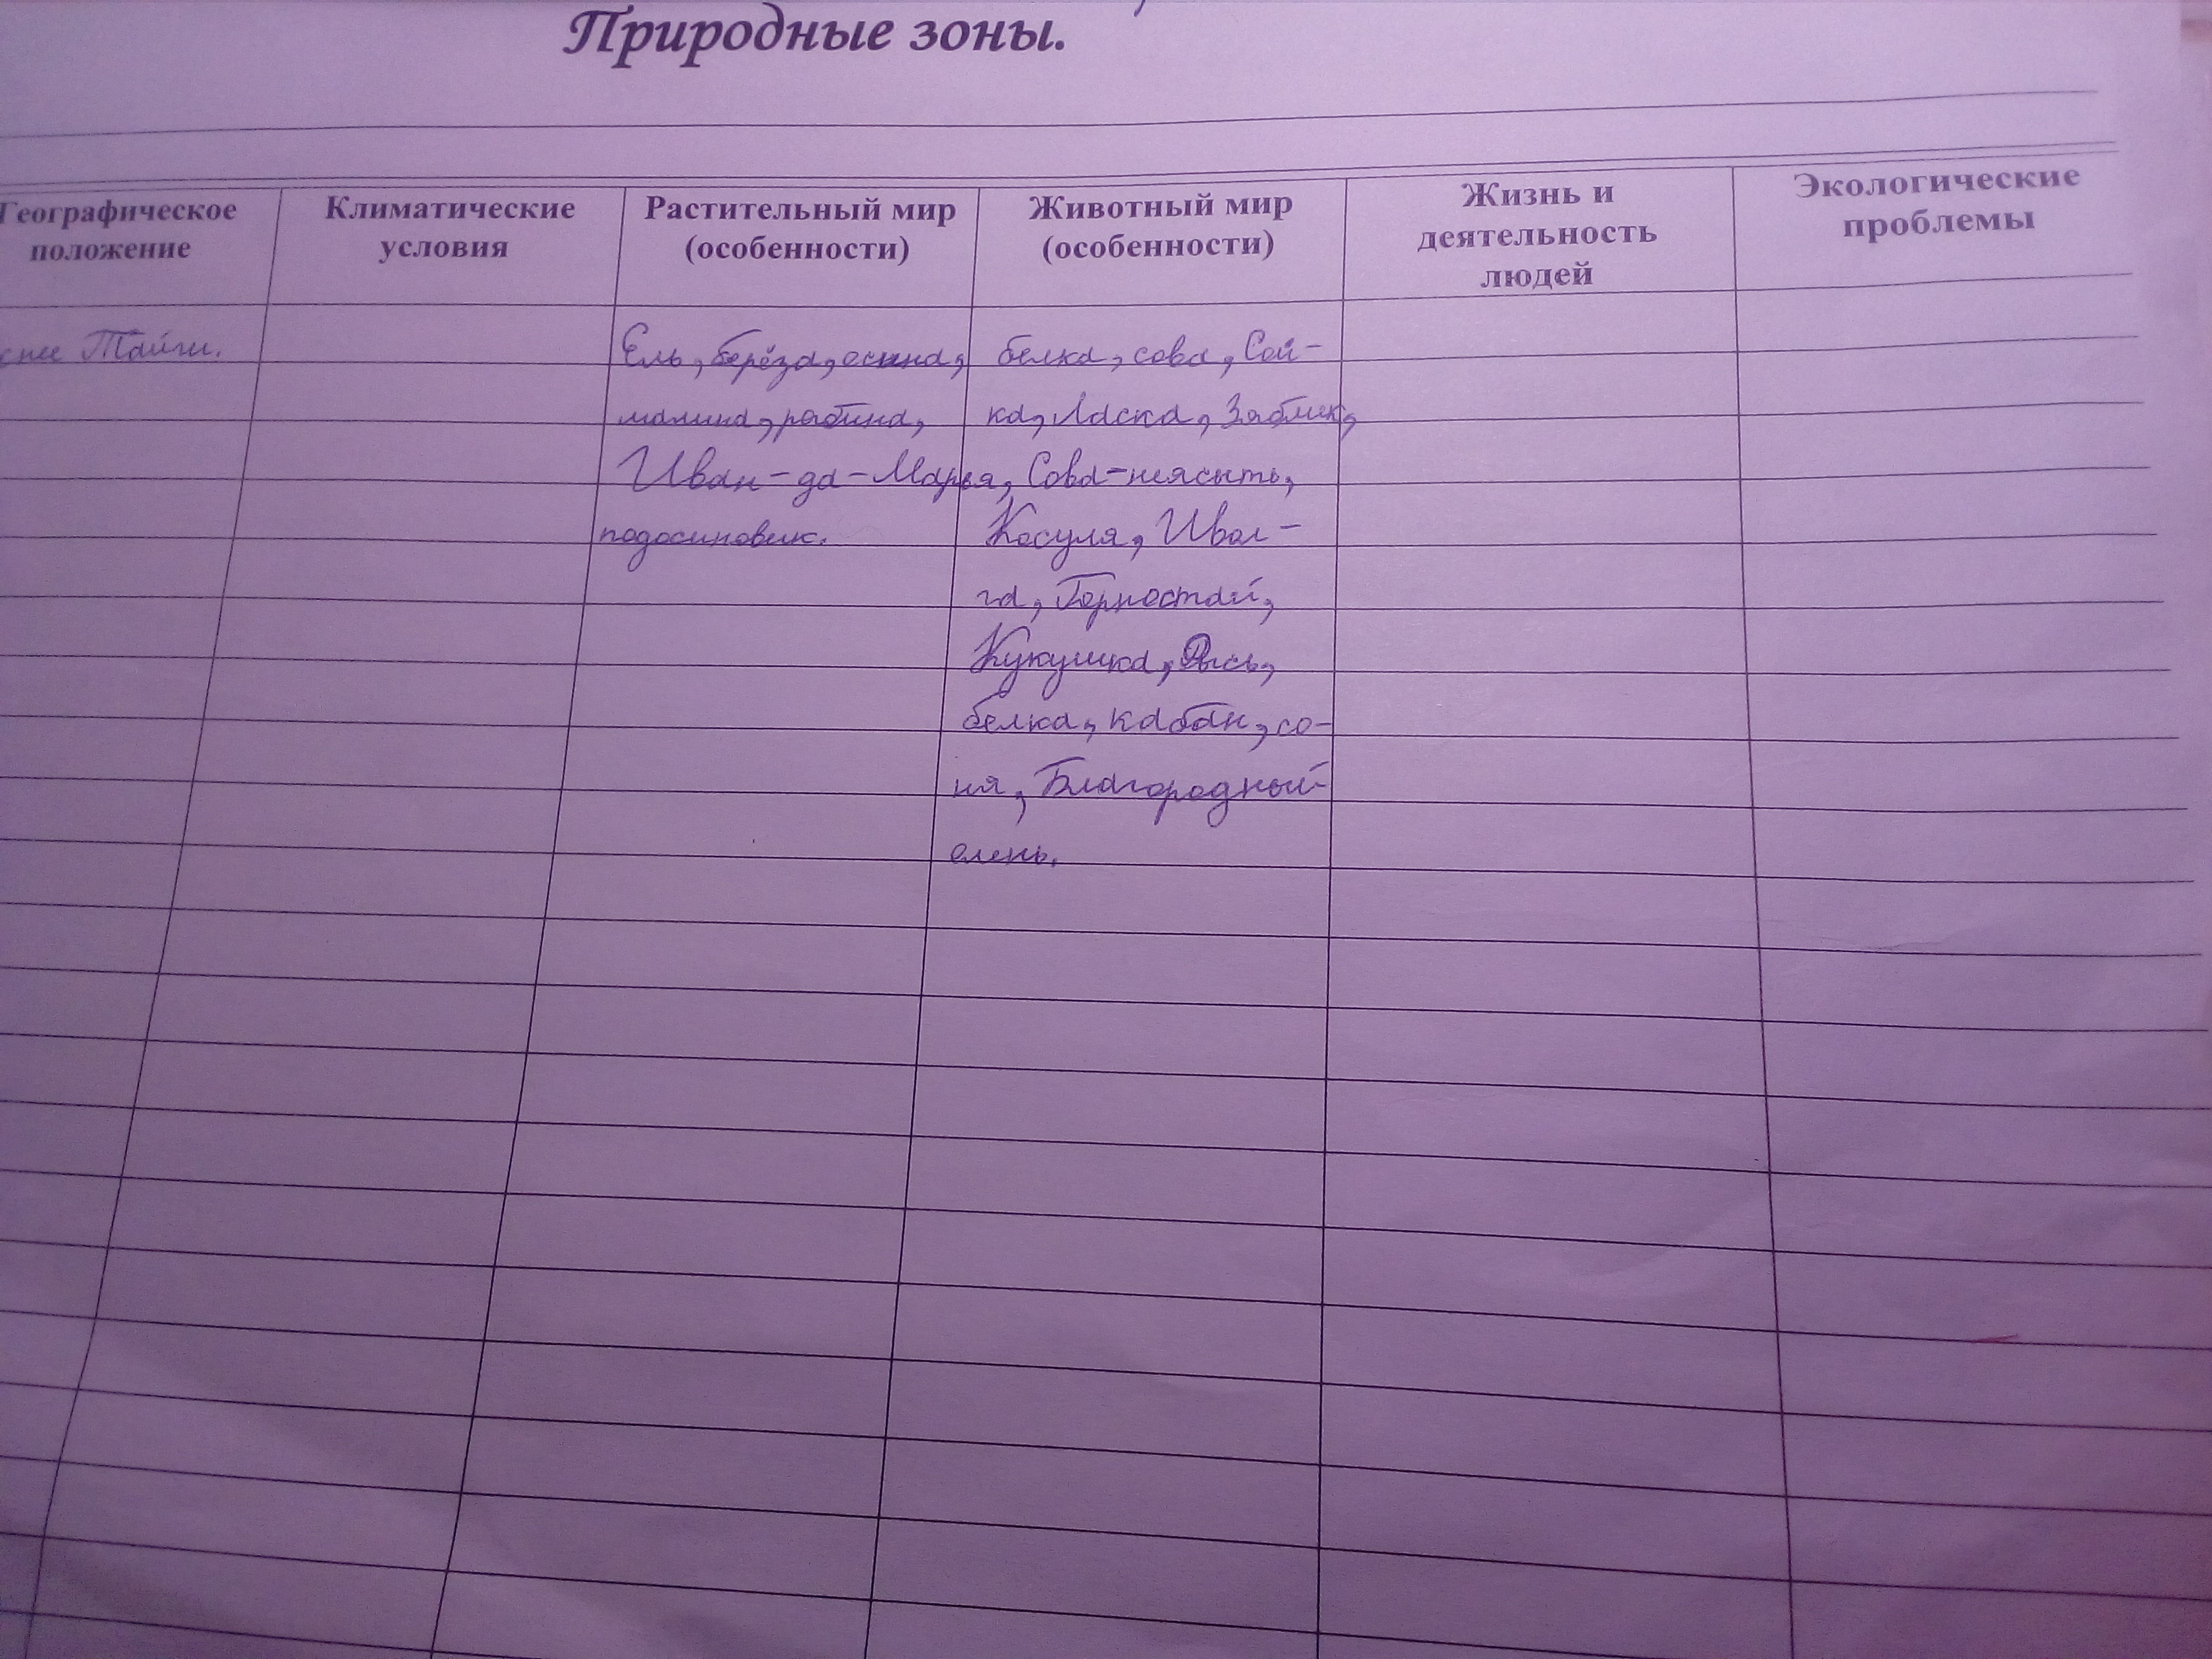 Природные зоны.
Географическое положение
Климатические условия
Растительный мир (особенности)
Животный мир (особенности)
Жизнь и деятельность людей
Экологические проблемы
Тайги.
Ель, берёза, осина,
малина, рябина,
Иван-да-Марья,
подосиновик.
белка, сова, Сой-
ка, Ласка, Зяблик,
Сова-неясыть,
Косуля, Ивол-
га, Горностай,
Кукушка, Рысь,
белка, кабан, со-
ня, Благородный
олень.